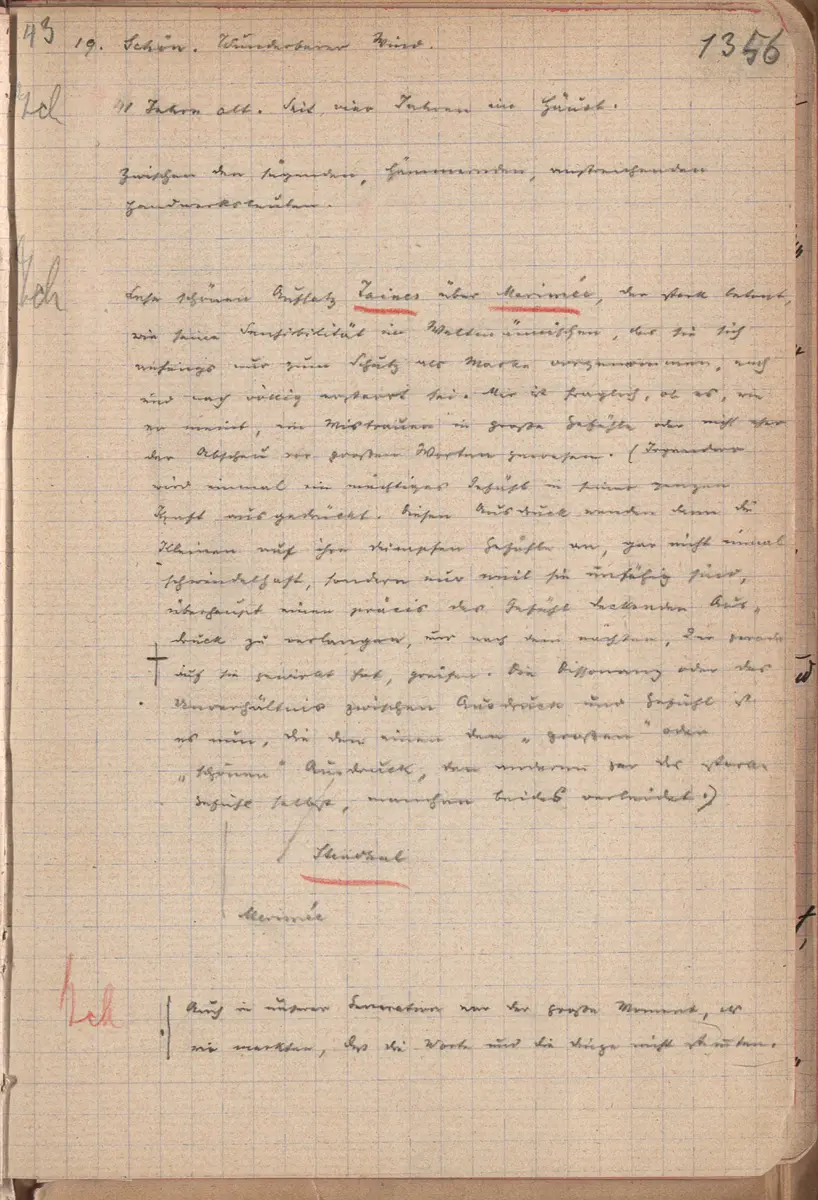 43
1356
19. Schön. Wunderbarer Wind.
Ich
41 Jahre alt. Seit vier Jahren im Häusl.
Zwischen den sägenden, hämmernden, anstreichenden
Handwerksleuten.
Ich
Lese schönen Aufsatz Taines über Merimée, der stark betont,
wie seine Sensibilität im Weltmännischen, das sie sich
anfangs nur zum Schutz als Maske vorgenommen, nach
und nach völlig erstarrt sei. Mir ist fraglich, ob es, wie
er meint, ein Mistrauen in große Gefühle oder nicht eher
der Abscheu vor großen Worten gewesen. (Irgendwo
wird einmal ein mächtiges Gefühl in seiner ganzen
Kraft ausgedrückt. Diesen Ausdruck wenden dann die
Kleinen auf ihre dumpfen Gefühle an, gar nicht einmal
schwindelhaft, sondern nur weil sie unfähig sind,
überhaupt einen präcis das Gefühl deckenden Aus-
druck zu verlangen, nur nach dem nächten, der gerade
auf sie gewirkt hat, greifen. Die Dissonanz oder das
Unverhältnis zwischen Ausdruck und Gefühl ist
es nun, die den einen den „großen" oder
„schönen" Ausdruck, den anderen gar das starke
Gefühl selbst, manchen beides verleidet.)
Stendhal
Merimée
Ich
Auch in unserer Generation war der große Moment, als
wir merkten, daß die Worte und die Dinge nicht stimmten.